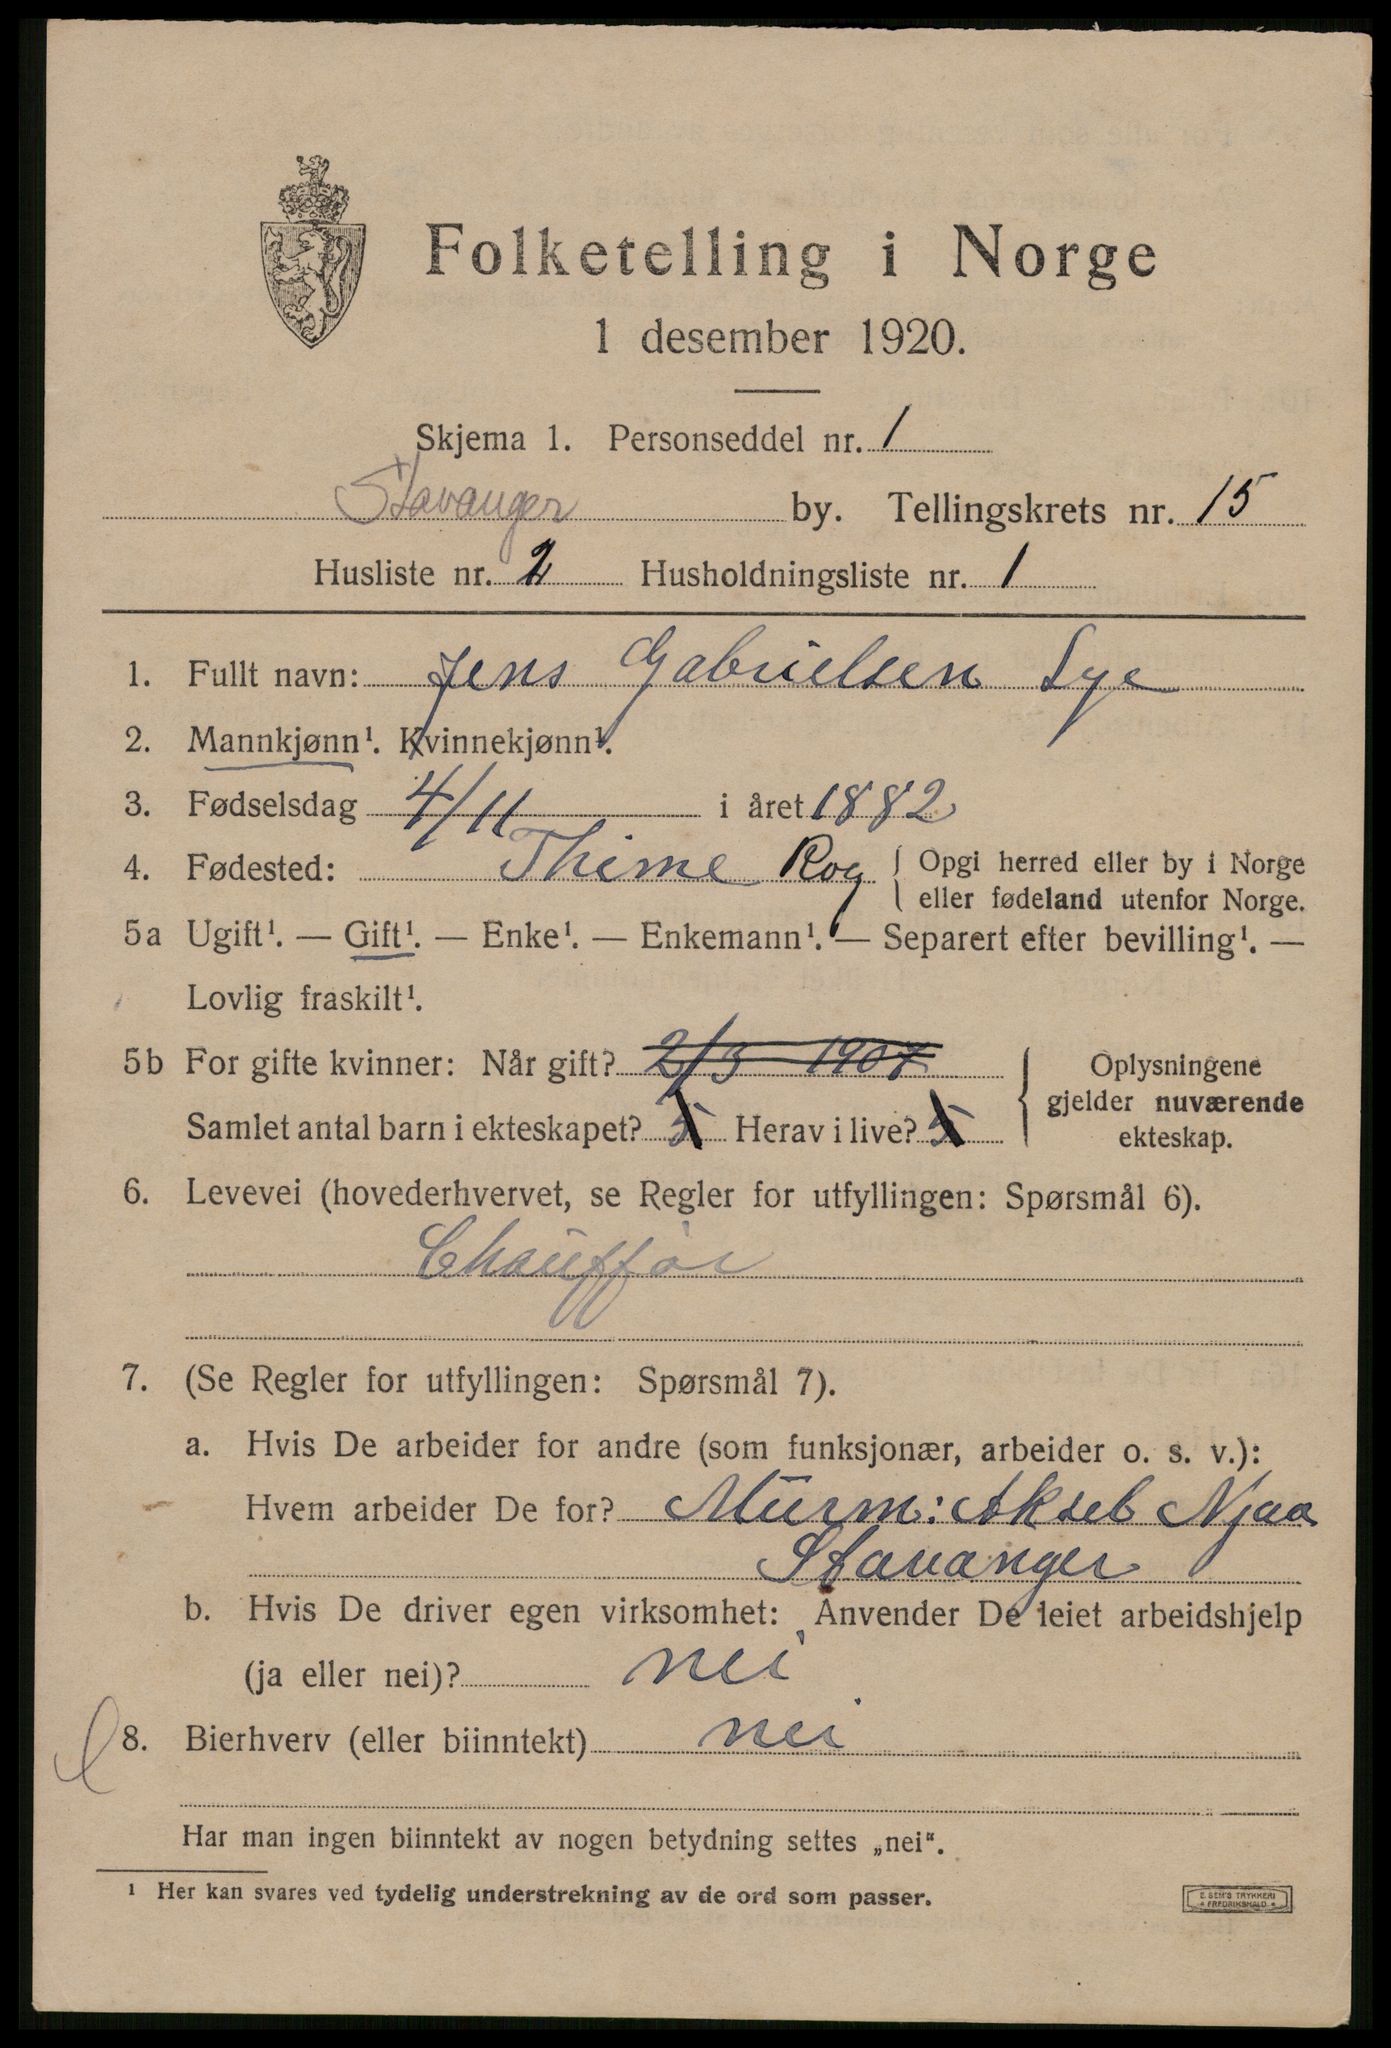 Folketelling i Norge
1 desember 1920.
Skjema 1. Personseddel nr. 1
Stavanger by. Tellingskrets nr. 15
Husliste nr. 2 Husholdningsliste nr. 1
1. Fullt navn: Jens Gabrielsen Lye
2. Mannkjønn¹. Kvinnekjønn¹.
3. Fødselsdag 4/11 i året 1882
4. Fødested: Thime Rog { Opgi herred eller by i Norge
eller fødeland utenfor Norge.
5a Ugift¹. — Gift¹. — Enke¹. — Enkemann¹. — Separert efter bevilling¹. —
Lovlig fraskilt¹.
5b For gifte kvinner: Når gift? 2/3 1907
Samlet antal barn i ekteskapet? 5 Herav i live? 5
{ Oplysningene
gjelder nuværende
ekteskap.
6. Levevei (hovederhvervet, se Regler for utfyllingen: Spørsmål 6).
Chauffør
7. (Se Regler for utfyllingen: Spørsmål 7).
a. Hvis De arbeider for andre (som funksjonær, arbeider o. s. v.):
Hvem arbeider De for? Murm: Aksel Njaa
Stavanger
b. Hvis De driver egen virksomhet: Anvender De leiet arbeidshjelp
(ja eller nei)? nei
8. Bierhverv (eller biinntekt) nei
Har man ingen biinntekt av nogen betydning settes „nei“.
¹ Her kan svares ved tydelig understrekning av de ord som passer.
E. SEM'S TRYKKERI
* FREDRIKSHALD *